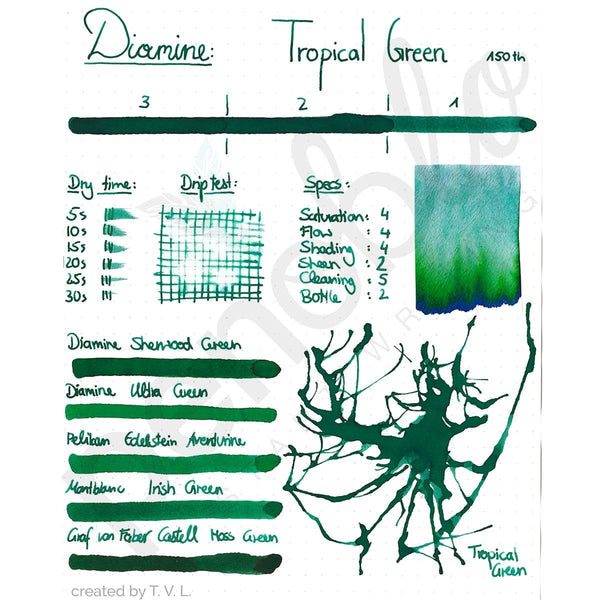 Diamine: Tropical Green 150th
3 2 1
Dry time: Driptest: Specs:
5s Saturation: 4
10s Flow : 4
15s Shading : 4
20s Sheen : 2
25s Cleaning : 5
30s Bottle : 2
Diamine Sherwood Green
Diamine Ultra Green
Pelikan Edelstein Aventurine
Montblanc Irish Green
Graf von Faber Castell Moss Green
Tropical
Green
created by T. V. L.